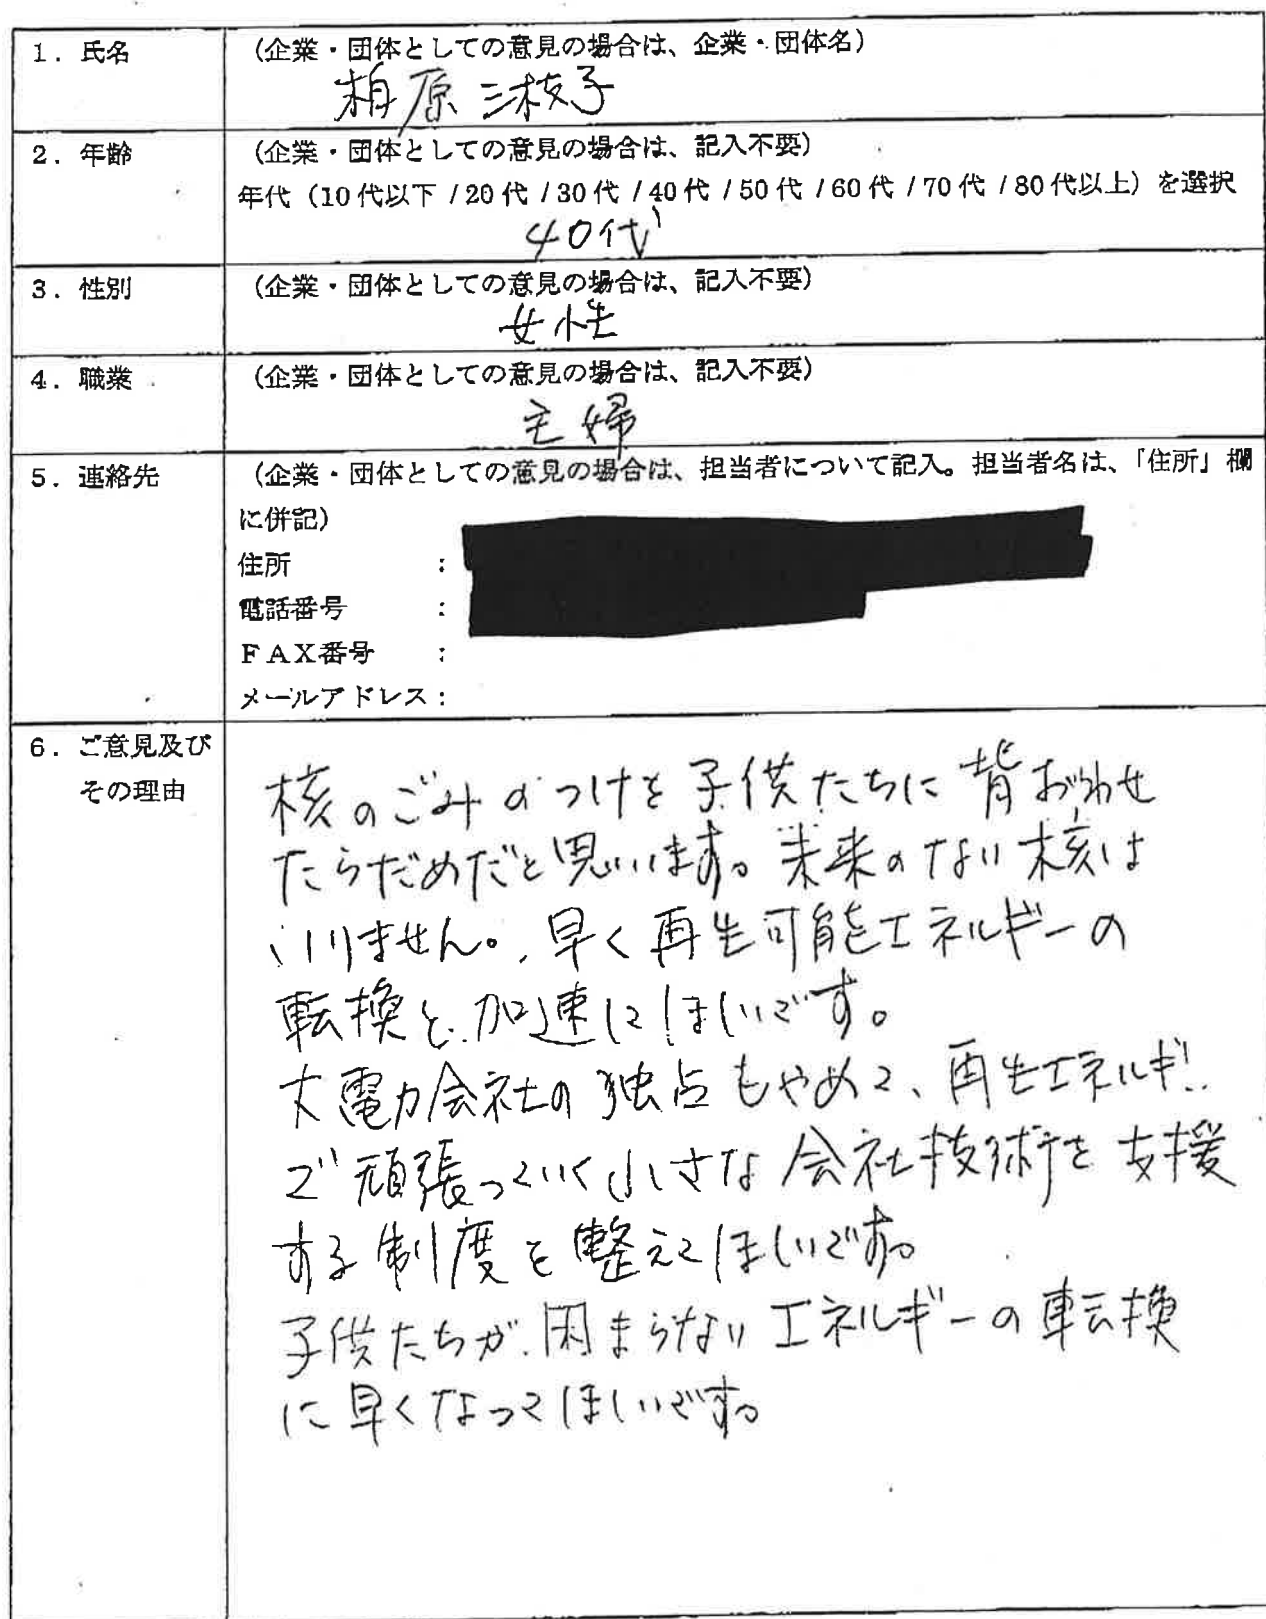 1. 氏名
(企業・団体としての意見の場合は、企業・団体名)
柏原三枝子
2. 年齢
(企業・団体としての意見の場合は、記入不要)
年代（10代以下 / 20代 / 30代 / 40代 / 50代 / 60代 / 70代 / 80代以上）を選択
40代
3. 性別
(企業・団体としての意見の場合は、記入不要)
女性
4. 職業
(企業・団体としての意見の場合は、記入不要)
主婦
5. 連絡先
(企業・団体としての意見の場合は、担当者について記入。担当者名は、「住所」欄
に併記)
住所 :
電話番号 :
FAX番号 :
メールアドレス:
6. ご意見及び
その理由
核のごみのつけを子供たちに背おわせ
たらだめだと思います。未来のない核は
いりません。早く再生可能エネルギーの
転換を加速してほしいです。
大電力会社の独占もやめて、再生エネルギー
で頑張っていく小さな会社技術を支援
する制度を整えてほしいです。
子供たちが困まらないエネルギーの転換
に早くなってほしいです。